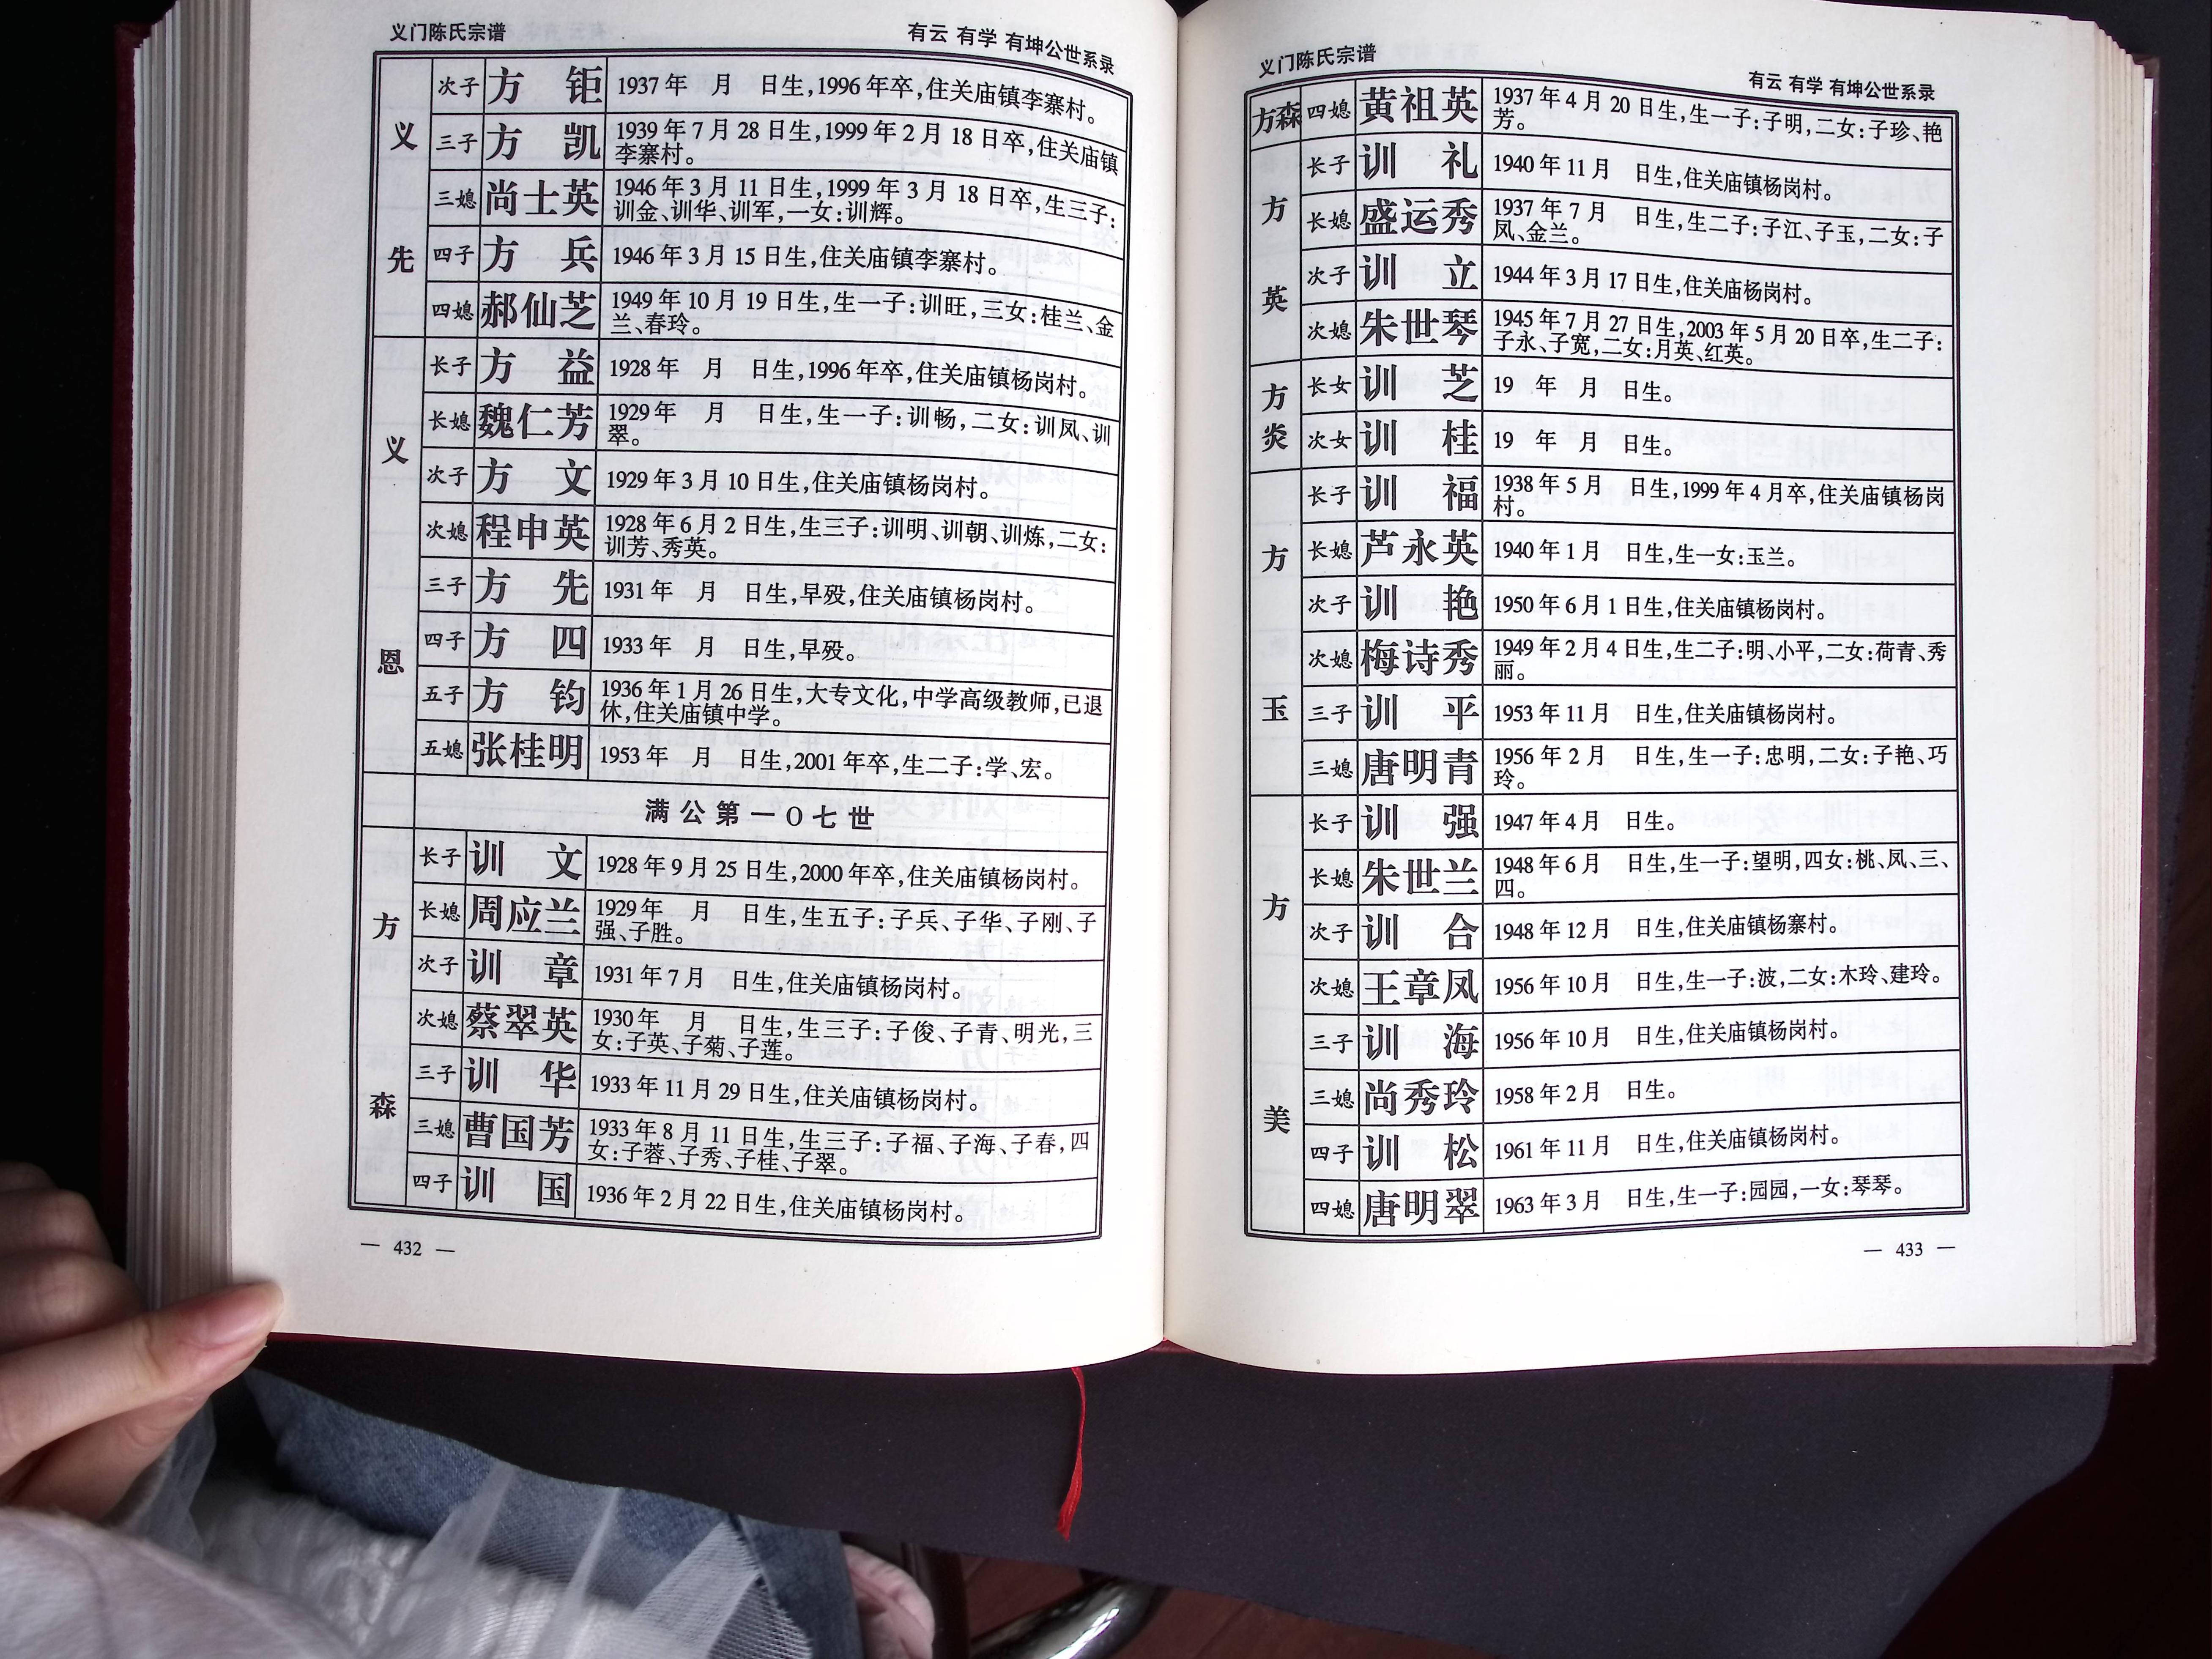 义门陈氏宗谱
有云 有学 有坤公世系录
义先
次子 方钜 1937年 月 日生,1996年卒,住关庙镇李寨村。
三子 方凯 1939年7月28日生,1999年2月18日卒,住关庙镇
李寨村。
三媳 尚士英 1946年3月11日生,1999年3月18日卒,生三子:
训金、训华、训军,一女:训辉。
四子 方兵 1946年3月15日生,住关庙镇李寨村。
四媳 郝仙芝 1949年10月19日生,生一子:训旺,三女:桂兰、金
兰、春玲。
义恩
长子 方益 1928年 月 日生,1996年卒,住关庙镇杨岗村。
长媳 魏仁芳 1929年 月 日生,生一子:训畅,二女:训凤、训
翠。
次子 方文 1929年3月10日生,住关庙镇杨岗村。
次媳 程申英 1928年6月2日生,生三子:训明、训朝、训炼,二女:
训芳、秀英。
三子 方先 1931年 月 日生,早殁,住关庙镇杨岗村。
四子 方四 1933年 月 日生,早殁。
五子 方钧 1936年1月26日生,大专文化,中学高级教师,已退
休,住关庙镇中学。
五媳 张桂明 1953年 月 日生,2001年卒,生二子:学、宏。
满公第一0七世
方森
长子 训文 1928年9月25日生,2000年卒,住关庙镇杨岗村。
长媳 周应兰 1929年 月 日生,生五子:子兵、子华、子刚、子
强、子胜。
次子 训章 1931年7月 日生,住关庙镇杨岗村。
次媳 蔡翠英 1930年 月 日生,生三子:子俊、子青、明光,三
女:子英、子菊、子莲。
三子 训华 1933年11月29日生,住关庙镇杨岗村。
三媳 曹国芳 1933年8月11日生,生三子:子福、子海、子春,四
女:子蓉、子秀、子桂、子翠。
四子 训国 1936年2月22日生,住关庙镇杨岗村。
— 432 —
义门陈氏宗谱
有云 有学 有坤公世系录
方森
四媳 黄祖英 1937年4月20日生,生一子:子明,二女:子珍、艳
芳。
方英
长子 训礼 1940年11月 日生,住关庙镇杨岗村。
长媳 盛运秀 1937年7月 日生,生二子:子江、子玉,二女:子
凤、金兰。
次子 训立 1944年3月17日生,住关庙杨岗村。
次媳 朱世琴 1945年7月27日生,2003年5月20日卒,生二子:
子永、子宽,二女:月英、红英。
方炎
长女 训芝 19 年 月 日生。
次女 训桂 19 年 月 日生。
方玉
长子 训福 1938年5月 日生,1999年4月卒,住关庙镇杨岗
村。
长媳 芦永英 1940年1月 日生,生一女:玉兰。
次子 训艳 1950年6月1日生,住关庙镇杨岗村。
次媳 梅诗秀 1949年2月4日生,生二子:明、小平,二女:荷青、秀
丽。
三子 训平 1953年11月 日生,住关庙镇杨岗村。
三媳 唐明青 1956年2月 日生,生一子:忠明,二女:子艳、巧
玲。
方美
长子 训强 1947年4月 日生。
长媳 朱世兰 1948年6月 日生,生一子:望明,四女:桃、凤、三、
四。
次子 训合 1948年12月 日生,住关庙镇杨寨村。
次媳 王章凤 1956年10月 日生,生一子:波,二女:木玲、建玲。
三子 训海 1956年10月 日生,住关庙镇杨岗村。
三媳 尚秀玲 1958年2月 日生。
四子 训松 1961年11月 日生,住关庙镇杨岗村。
四媳 唐明翠 1963年3月 日生,生一子:园园,一女:琴琴。
— 433 —